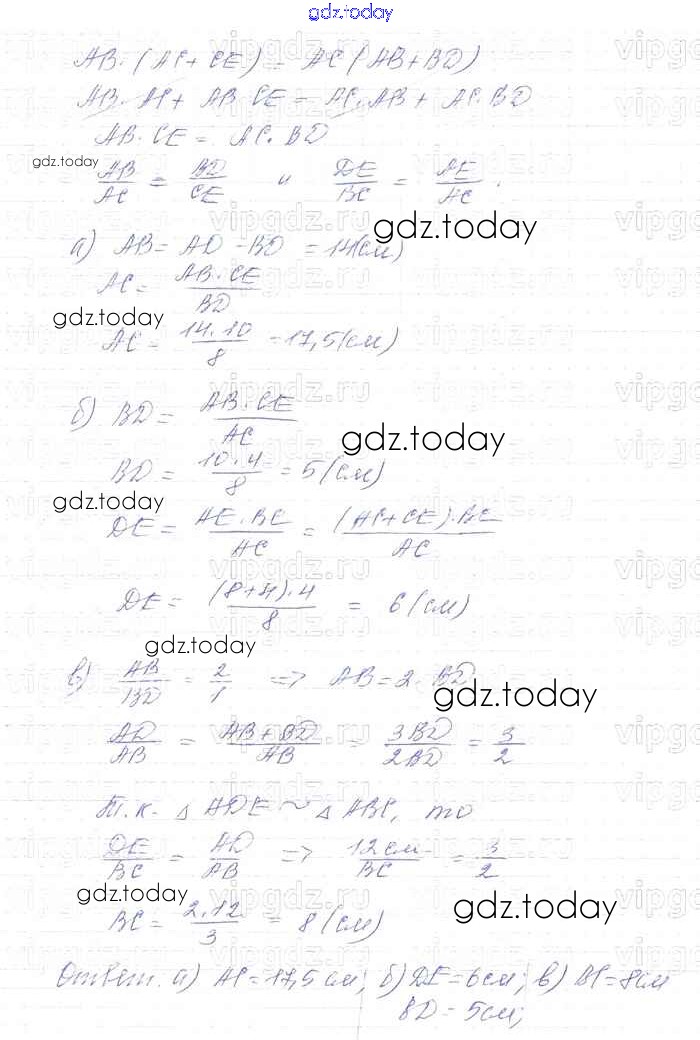 gdz.today
AB·(AC+CE) = AC(AB+BD)
AB·AC + AB·CE = AC·AB + AC·BD
AB·CE = AC·BD
gdz.today
AB/AC = BD/CE и DE/BC = AE/AC.
gdz.today
а) AB = AD - BD = 14(см)
AC = AB·CE/BD
gdz.today
AC = 14·10/8 = 17,5(см)
б) BD = AB·CE/AC
gdz.today
BD = 10·4/8 = 5(см)
gdz.today
DE = AE·BC/AC = (AC+CE)·BC/AC
DE = (8+4)·4/8 = 6(см)
gdz.today
в) AB/BD = 2/1 => AB = 2·BD
gdz.today
AD/AB = AB+BD/AB = 3BD/2BD = 3/2
Т.к. △ADE ~ △ABC, то
DE/BC = AD/AB => 12см/BC = 3/2
gdz.today
gdz.today
BC = 2·12/3 = 8(см)
Ответ: а) AC=17,5см; б) DE=6см; в) BC=8см
BD=5см;